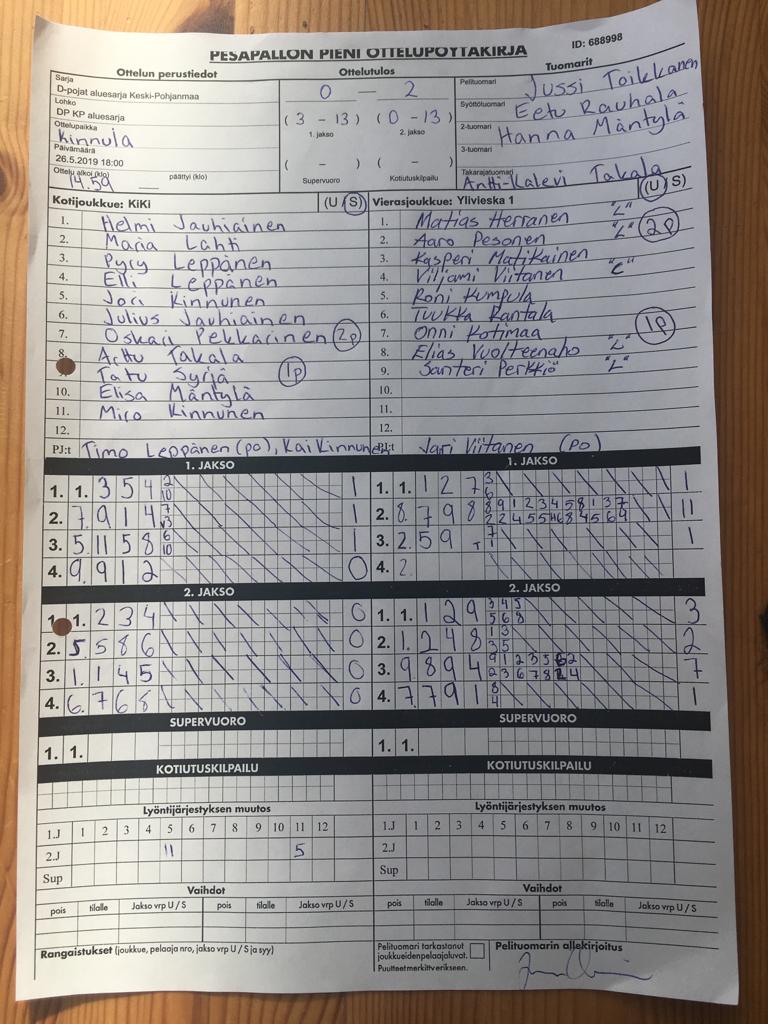 PESÄPALLON PIENI OTTELUPÖYTÄKIRJA
ID: 688998
Ottelun perustiedot
Sarja
D-pojat aluesarja Keski-Pohjanmaa
Lohko
DP KP aluesarja
Ottelupaikka
Kinnula
Päivämäärä
26.5.2019 18:00
Ottelu alkoi (klo) 14.59 päättyi (klo)
Ottelutulos
0 — 2
(3 - 13) (0 - 13)
1. jakso 2. jakso
( - ) ( - )
Supervuoro Kotiutuskilpailu
Tuomarit
Pelituomari Jussi Toikkanen
Syöttötuomari Eetu Rauhala
2-tuomari Hanna Mäntylä
3-tuomari
Takarajatuomari Antti-Kalevi Takala
Kotijoukkue: KiKi (U / S)
1. Helmi Jauhiainen
2. Maria Lahti
3. Pyry Leppänen
4. Elli Leppänen
5. Jori Kinnunen
6. Julius Jauhiainen
7. Oskari Pekkarinen 2p
8. Arttu Takala
Tatu Syrjä 1p
10. Elisa Mäntylä
11. Miro Kinnunen
12.
PJ:t Timo Leppänen (po), Kai Kinnunen
Vierasjoukkue: Ylivieska 1 (U / S)
1. Matias Herranen "L"
2. Aaro Pesonen "L" 2p
3. Kasperi Matikainen
4. Viljami Viitanen "C"
5. Roni Kumpula
6. Tuukka Rantala
7. Onni Kotimaa 1p
8. Elias Vuolteenaho "L"
9. Santeri Perkkiö "L"
10.
11.
12.
PJ:t Jari Viitanen (po)
1. JAKSO
1. 1. 3 5 4 2 10 1
2. 7. 9 1 4 7 3 1
3. 5. 11 5 8 6 10 1
4. 9. 9 1 2 0
2. JAKSO
1. 1. 2 3 4 0
2. 5. 5 8 6 0
3. 1. 1 4 5 0
4. 6. 7 6 8 0
SUPERVUORO
1. 1.
KOTIUTUSKILPAILU
Lyöntijärjestyksen muutos
1.J 1 2 3 4 5 6 7 8 9 10 11 12
2.J 11 5
Sup
Vaihdot
pois tilalle Jakso vrp U / S pois tilalle Jakso vrp U / S
1. JAKSO
1. 1. 1 2 7 3 6 1
2. 8. 7 9 8 11
3. 2. 5 9 T 7 1 1
4. 2.
2. JAKSO
1. 1. 1 2 9 3 4 5 3
5 6 8
2. 1. 2 4 8 1 3 2
3 5
3. 9. 8 9 4 7
4. 7. 7 9 1 8 4 1
SUPERVUORO
1. 1.
KOTIUTUSKILPAILU
Lyöntijärjestyksen muutos
1.J 1 2 3 4 5 6 7 8 9 10 11 12
2.J
Sup
Vaihdot
pois tilalle Jakso vrp U / S pois tilalle Jakso vrp U / S
Rangaistukset (joukkue, pelaaja nro, jakso vrp U / S ja syy)
Pelituomari tarkastanut
joukkueiden pelaajaluvat.
Puutteet merkitty erikseen.
Pelituomarin allekirjoitus